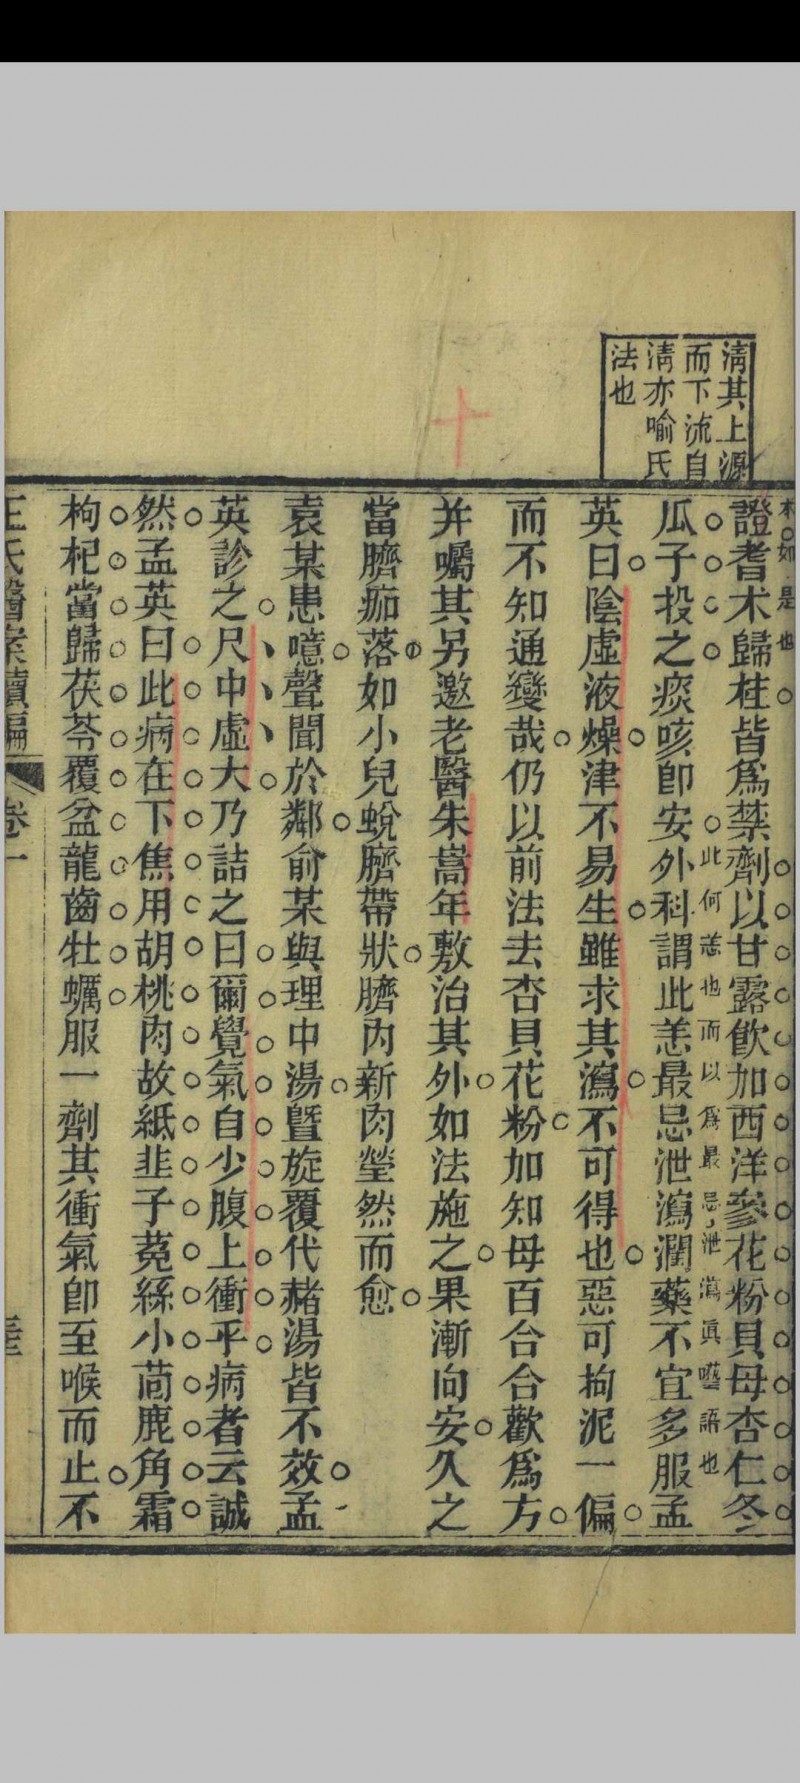 清其上源
而下流自
清亦喻氏
法也
如是也
證耆朮歸桂皆爲禁劑以甘露飲加西洋參花粉貝母杏仁冬
瓜子投之痰咳卽安外科謂此恙最忌泄瀉潤藥不宜多服孟
此何恙也而以爲最忌泄瀉眞囈語也
英曰陰虛液燥津不易生雖求其瀉不可得也惡可拘泥一偏
而不知通變哉仍以前法去杏貝花粉加知母百合合歡爲方
幷囑其另邀老醫朱嵩年敷治其外如法施之果漸向安久之
當臍痂落如小兒蛻臍帶狀臍內新肉瑩然而愈
袁某患噫聲聞於鄰俞某與理中湯曁旋覆代赭湯皆不效孟
英診之尺中虛大乃詰之曰爾覺氣自少腹上衝乎病者云誠
然孟英曰此病在下焦用胡桃肉故紙韭子菟絲小茴鹿角霜
枸杞當歸茯苓覆盆龍齒牡蠣服一劑其衝氣卽至喉而止不
王氏醫案續編 卷一